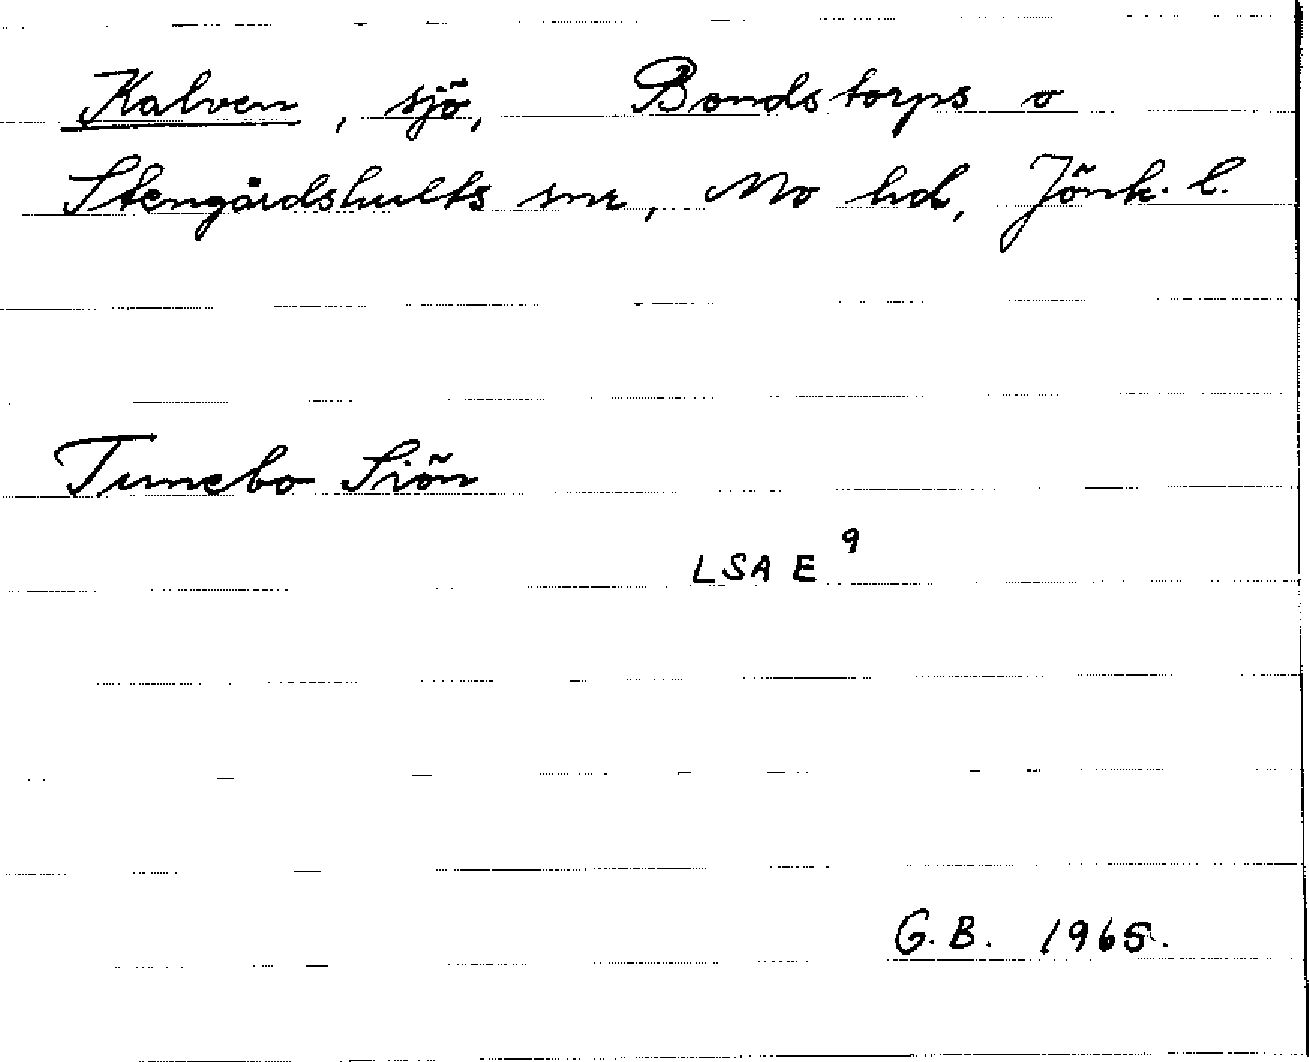 Kalven, sjö, Bondstorps o
Stengårdshults snr, Mo hd, Jönk. l.
Tunebo Siön
LSA E 9
G.B. 1965.